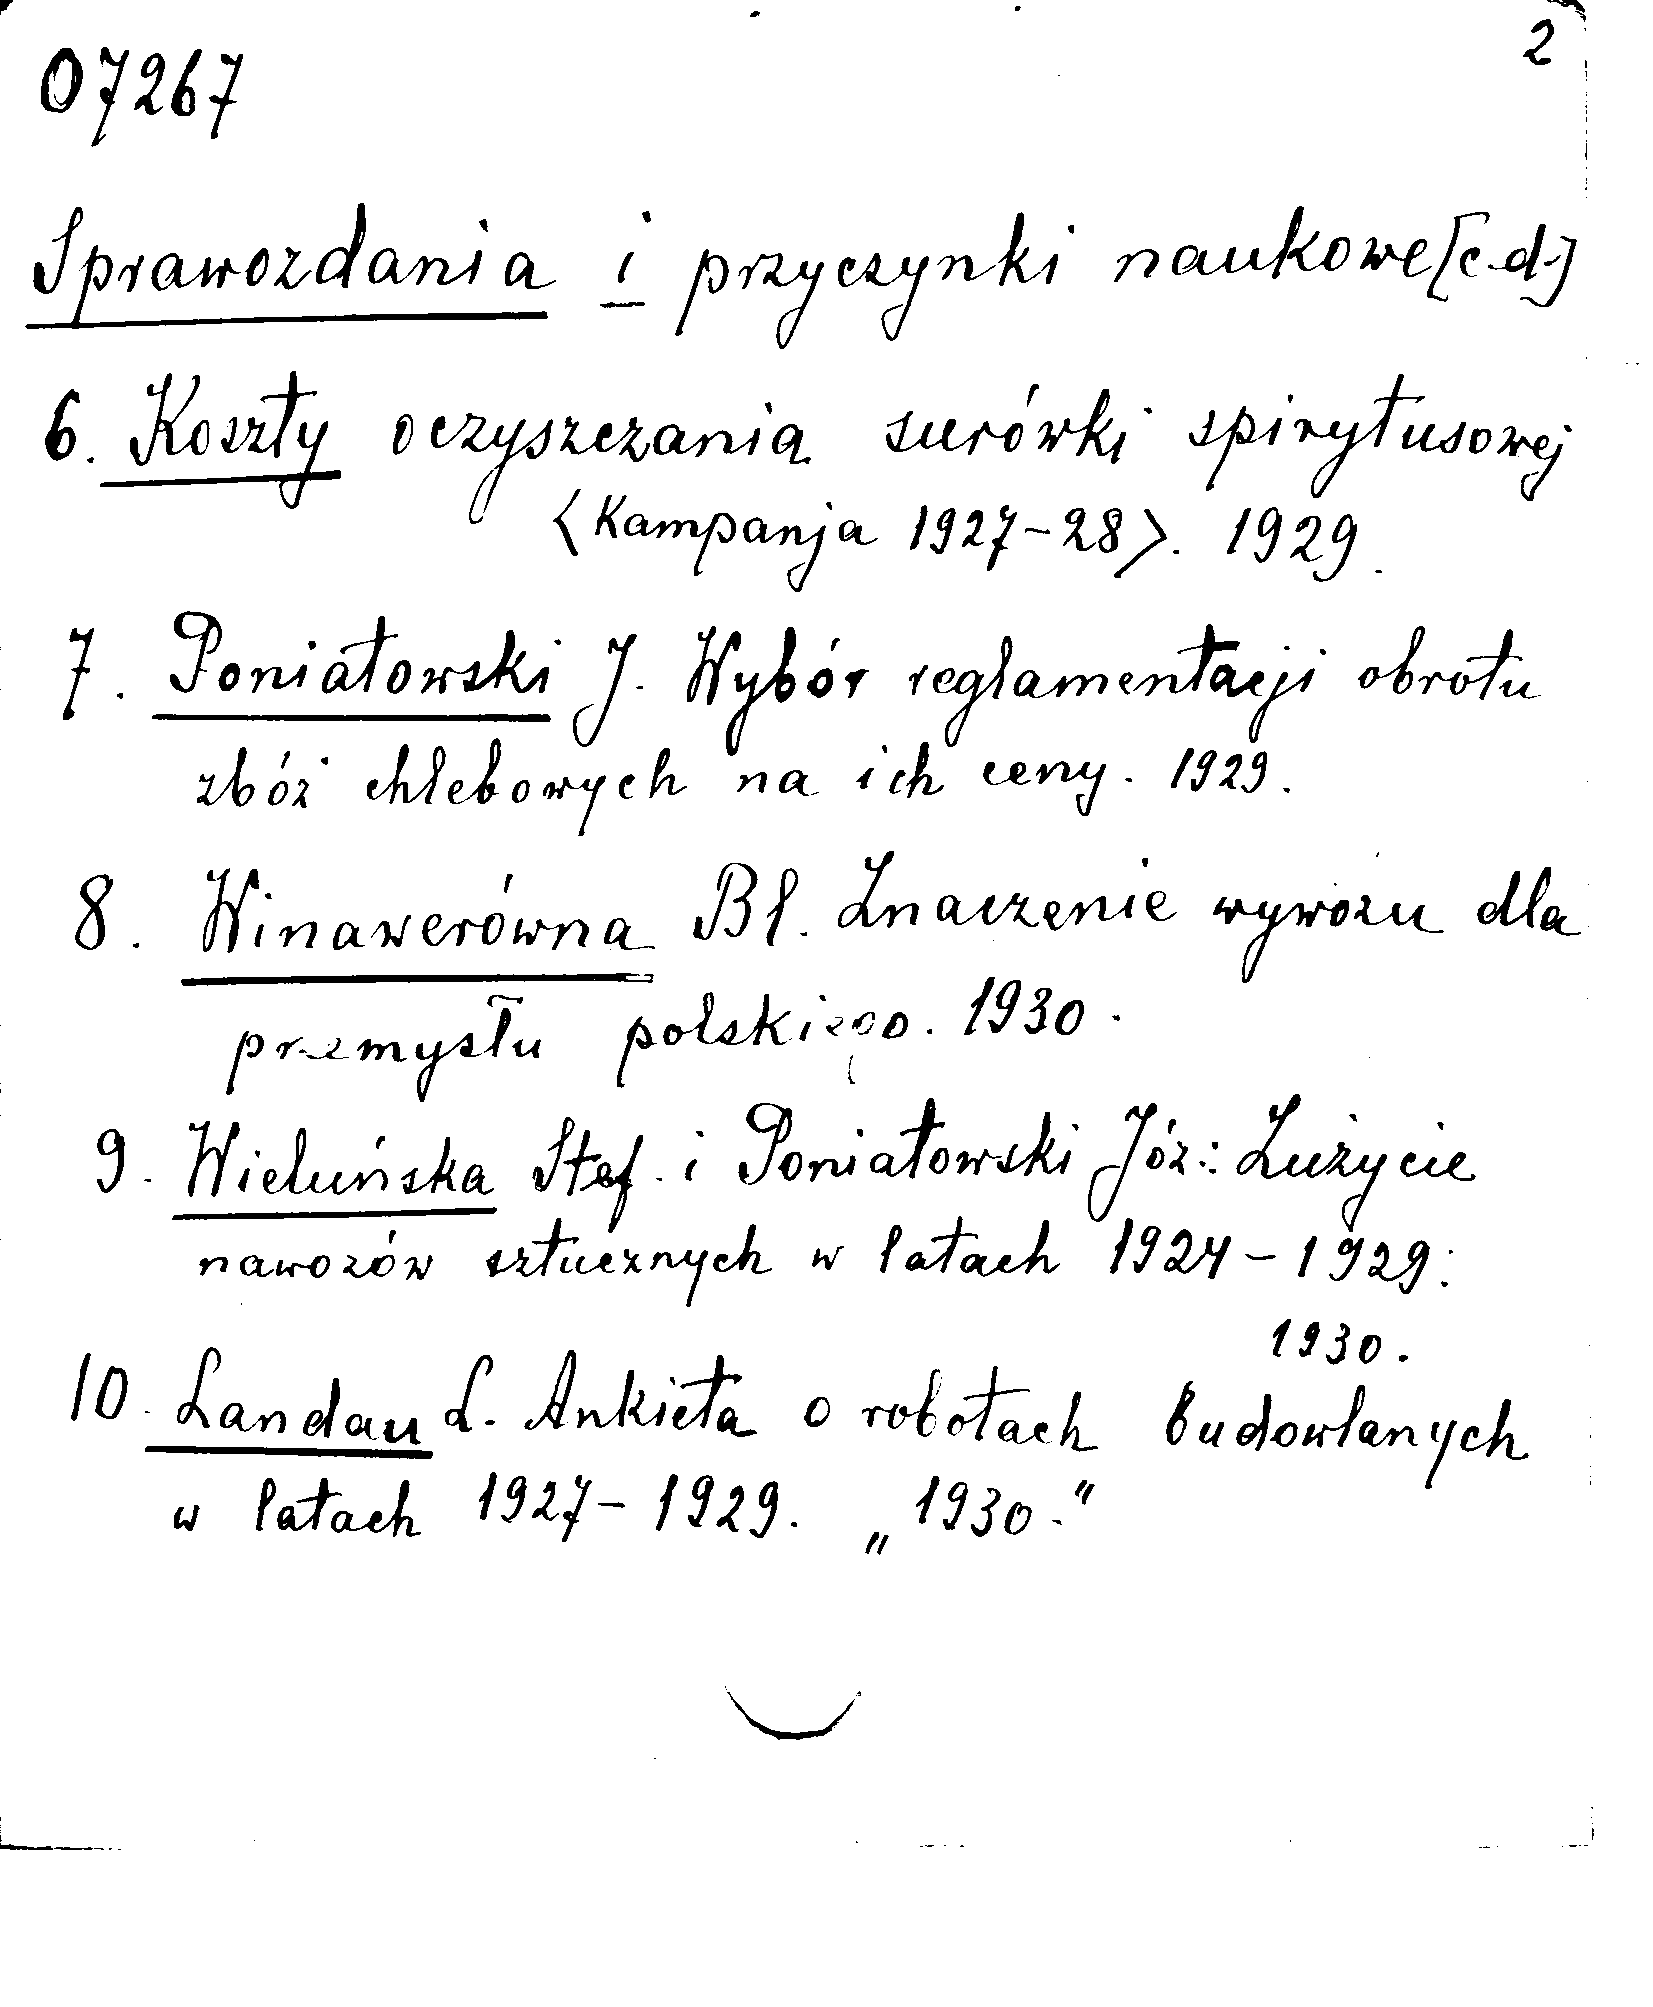 2
07267
Sprawozdania i przyczynki naukowe [c.d.]
6. Koszty oczyszczania surówki spirytusowej
<Kampanja 1927-28>. 1929.
7. Poniatowski J. Wybór reglamentacji obrotu
zbóż chlebowych na ich ceny. 1929.
8. Winawerówna Bł. Znaczenie wywozu dla
przemysłu polskiego. 1930.
9. Wieluńska Stef. i Poniatowski Józ.: Zużycie
nawozów sztucznych w latach 1924-1929.
1930.
10. Landau L. Ankieta o robotach budowlanych
w latach 1927-1929. „1930."